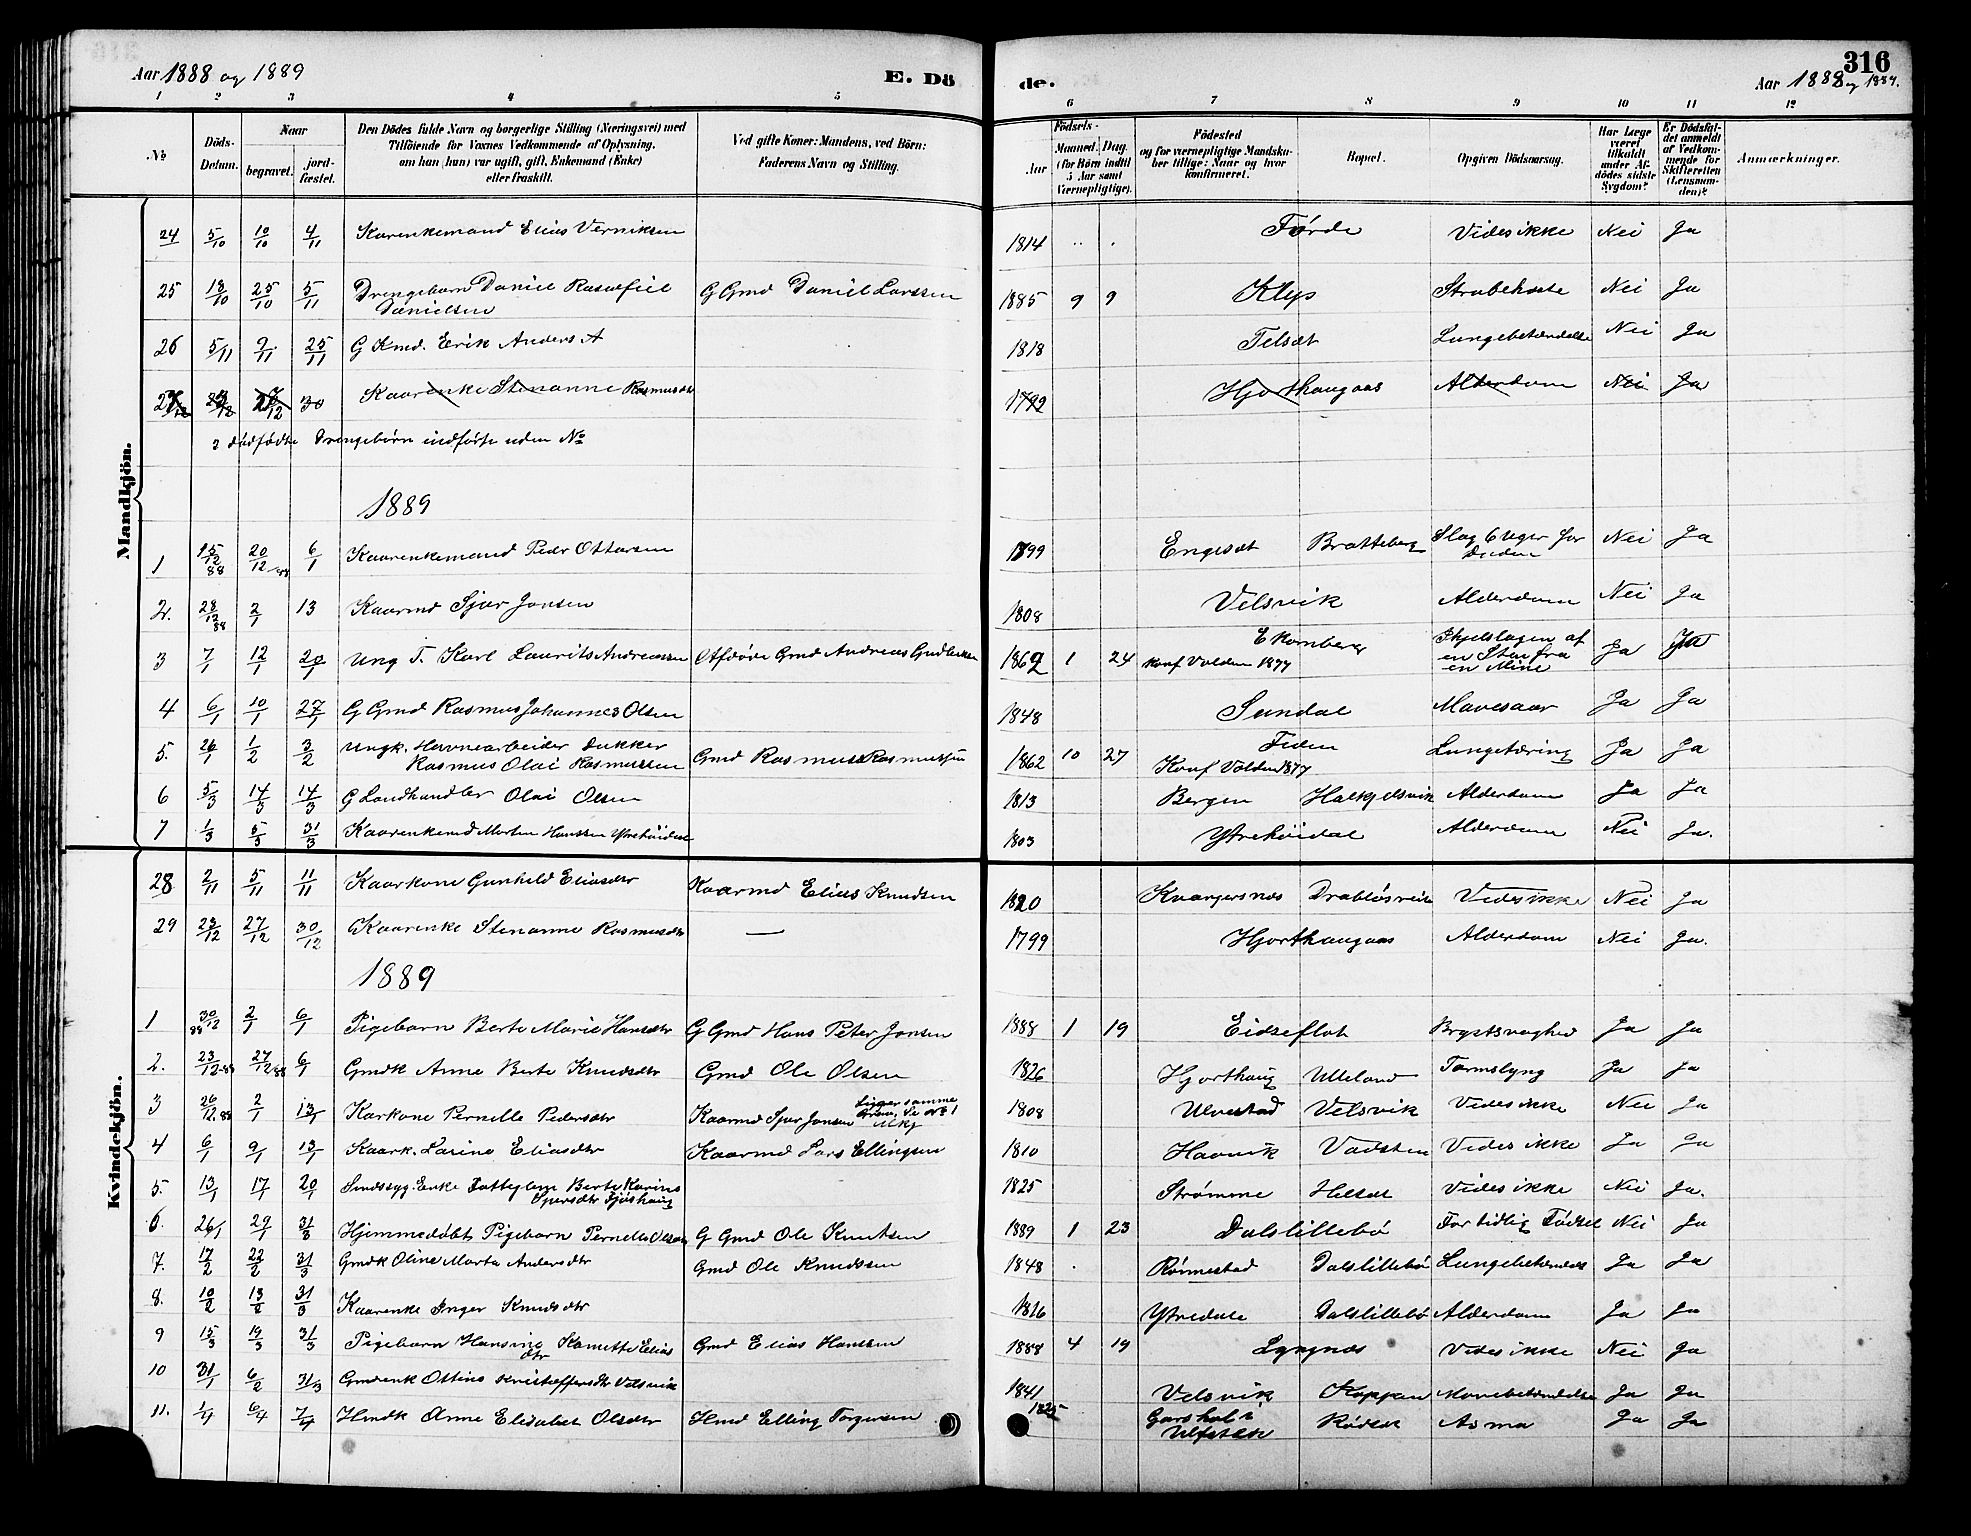 Aar 1888 og 1889
E. Dö
de.
316
Aar 1888 og 1889.
1 2 3 4 5 6 7 8 9 10 11 12
No
Döds-Datum.
Naar
begravet.
jord-fæstet.
Den Dödes fulde Navn og borgerlige Stilling (Næringsvei) med
Tilföiende for Voxnes Vedkommende af Oplysning,
om han (hun) var ugift, gift, Enkemand (Enke)
eller fraskilt.
Ved gifte Koner: Mandens, ved Börn:
Faderens Navn og Stilling.
Födsels-
Aar
Maaned. Dag.
(for Börn indtil
5 Aar samt
Værnepligtige).
Födested
og for værnepligtige Mandska-
ber tillige: Naar og hvor
konfirmeret.
Bopæl.
Opgiven Dödsaarsag.
Har Læge
været
tilkaldt
under Af-
dödes sidste
Sygdom?
Er Dödsfal-
det anmeldt
af Vedkom-
mende for
Skifteretten
(Lensman-
den)?
Anmærkninger.
Mandkjön.
24 5/10 10/10 4/11 Kaarenkemand Elias Verniksen 1814 Førde Vides ikke Nei Ja
25 18/10 25/10 5/11 Drengebarn Daniel Danielsen G Gmd Daniel Larssen 1885 9 9 Klep Strubehoste Nei Ja
26 5/11 9/11 25/11 G Kmd. Erik Anders A 1818 Telsæt Lungebetændelse Nei Ja
Kaarenke Stenanne Rasmusdtr 1792 Hjorthaugaas Alderdom Nei Ja
2 dødfødte Drengebørn indførte uden No
1889
1 15/12 88 20/12 88 6/1 Kaarenkemand Peder Ottarsen 1799 Engeset Bratteberg Slag 6 Uger før Døden Nei Ja
2. 28/12 88 2/1 13 Kaarmd Sjur Jonsen 1808 Velsvik Alderdom Nei Ja
3 7/1 12/1 20/1 Ung T. Karl Laurits Andreassen Afdøde Gmd Andreas 1862 1 24 Ekornberg konf Volden 1877 Ihjelslagen af en Sten fra en Mine Ja
4 6/1 10/1 27/1 G Gmd Rasmus Johannes Olsen 1848 Sundal Mavesaar Ja Ja
5. 26/1 1/2 3/2 Ungk. Havnearbeider Dukker Rasmus Olai Rasmussen Gmd Rasmus Rasmussen 1862 10 27 Konf Volden 1877 Lungetæring Ja Ja
6 5/3 14/3 14/3 G Landhandler Olai Olsen 1813 Bergen Halkjelsvik Alderdom Ja Ja
7 1/3 5/3 31/3 Kaarenkemd Morten Hanssen Ytrehøidal 1803 Ytrehøidal Alderdom Nei Ja.
Kvindekjön.
28 2/11 5/11 11/11 Kaarkone Gunhild Eliasdtr Kaarmd Elias Knudsen 1820 Kvangersnes Drabløsvik Vides ikke Nei Ja
29 23/12 27/12 30/12 Kaarenke Stenanne Rasmusdtr — 1799 Hjorthaugaas Alderdom Nei Ja.
1889
1 30/12 88 2/1 6/1 Pigebarn Berte Marie Hansdtr G Gmd Hans Peter Jonsen 1888 1 19 Eidseflot Brystsvaghed Ja Ja
2. 23/12 88 27/12 88 6/1 Gmdk Anne Berte Knudsdtr Gmd Ole Olsen 1826 Hjorthaug Ulleland Tarmslyng Ja Ja
3 26/12 88 2/1 13/1 Karkone Pernille Pedersdtr Kaarmd Sjur Jonsen Ligger samme Grav, Se No 1 Mkj 1808 Ulvestad Velsvik Vides ikke Nei Ja
4 6/1 9/1 13/1 Kaark. Larine Eliasdtr Kaarmd Lars Ellingsen 1810 Haavik Vadsten Vides ikke Ja Ja
5. 13/1 17/1 20/1 Sindssyg Enke Fattiglem Berte Karine Sjursdtr Sjøshaug 1825 Strømme Helset Vides ikke Nei Ja.
6. 26/1 29/1 31/3 Hjemmedøbt Pigebarn Pernille Olsdtr G Gmd Ole Knutsen 1889 1 23 Dalslillebø For tidlig Fødsel Nei Ja
7. 17/2 22/2 31/3 Gmdk Oline Marta Andersdtr Gmd Ole Knudssen 1848 Rønnestad Dalslillebø Lungebetændelse Ja Ja
8. 10/2 13/2 31/3 Kaarenke Inger Knudsdtr 1816 Ytredale Dalslillebø Alderdom Ja Ja
9 15/3 19/3 31/3 Pigebarn Hansine Kanutte Elias dtr Gmd Elias Hanssen 1888 4 19 Lyngnes Vides ikke Nei Ja
10 31/1 6/2 31/3 Gmdenk Ottine Kristoffersdtr Velsvik 1841 Velsvik Koppen Mavebetændelse Ja Ja
11. 1/4 6/4 7/4 Hmdk Anne Elisabet Olsdtr Hmd Elling Torgersen 1825 Garshol i Ulfsten Rødset Asma Ja Ja